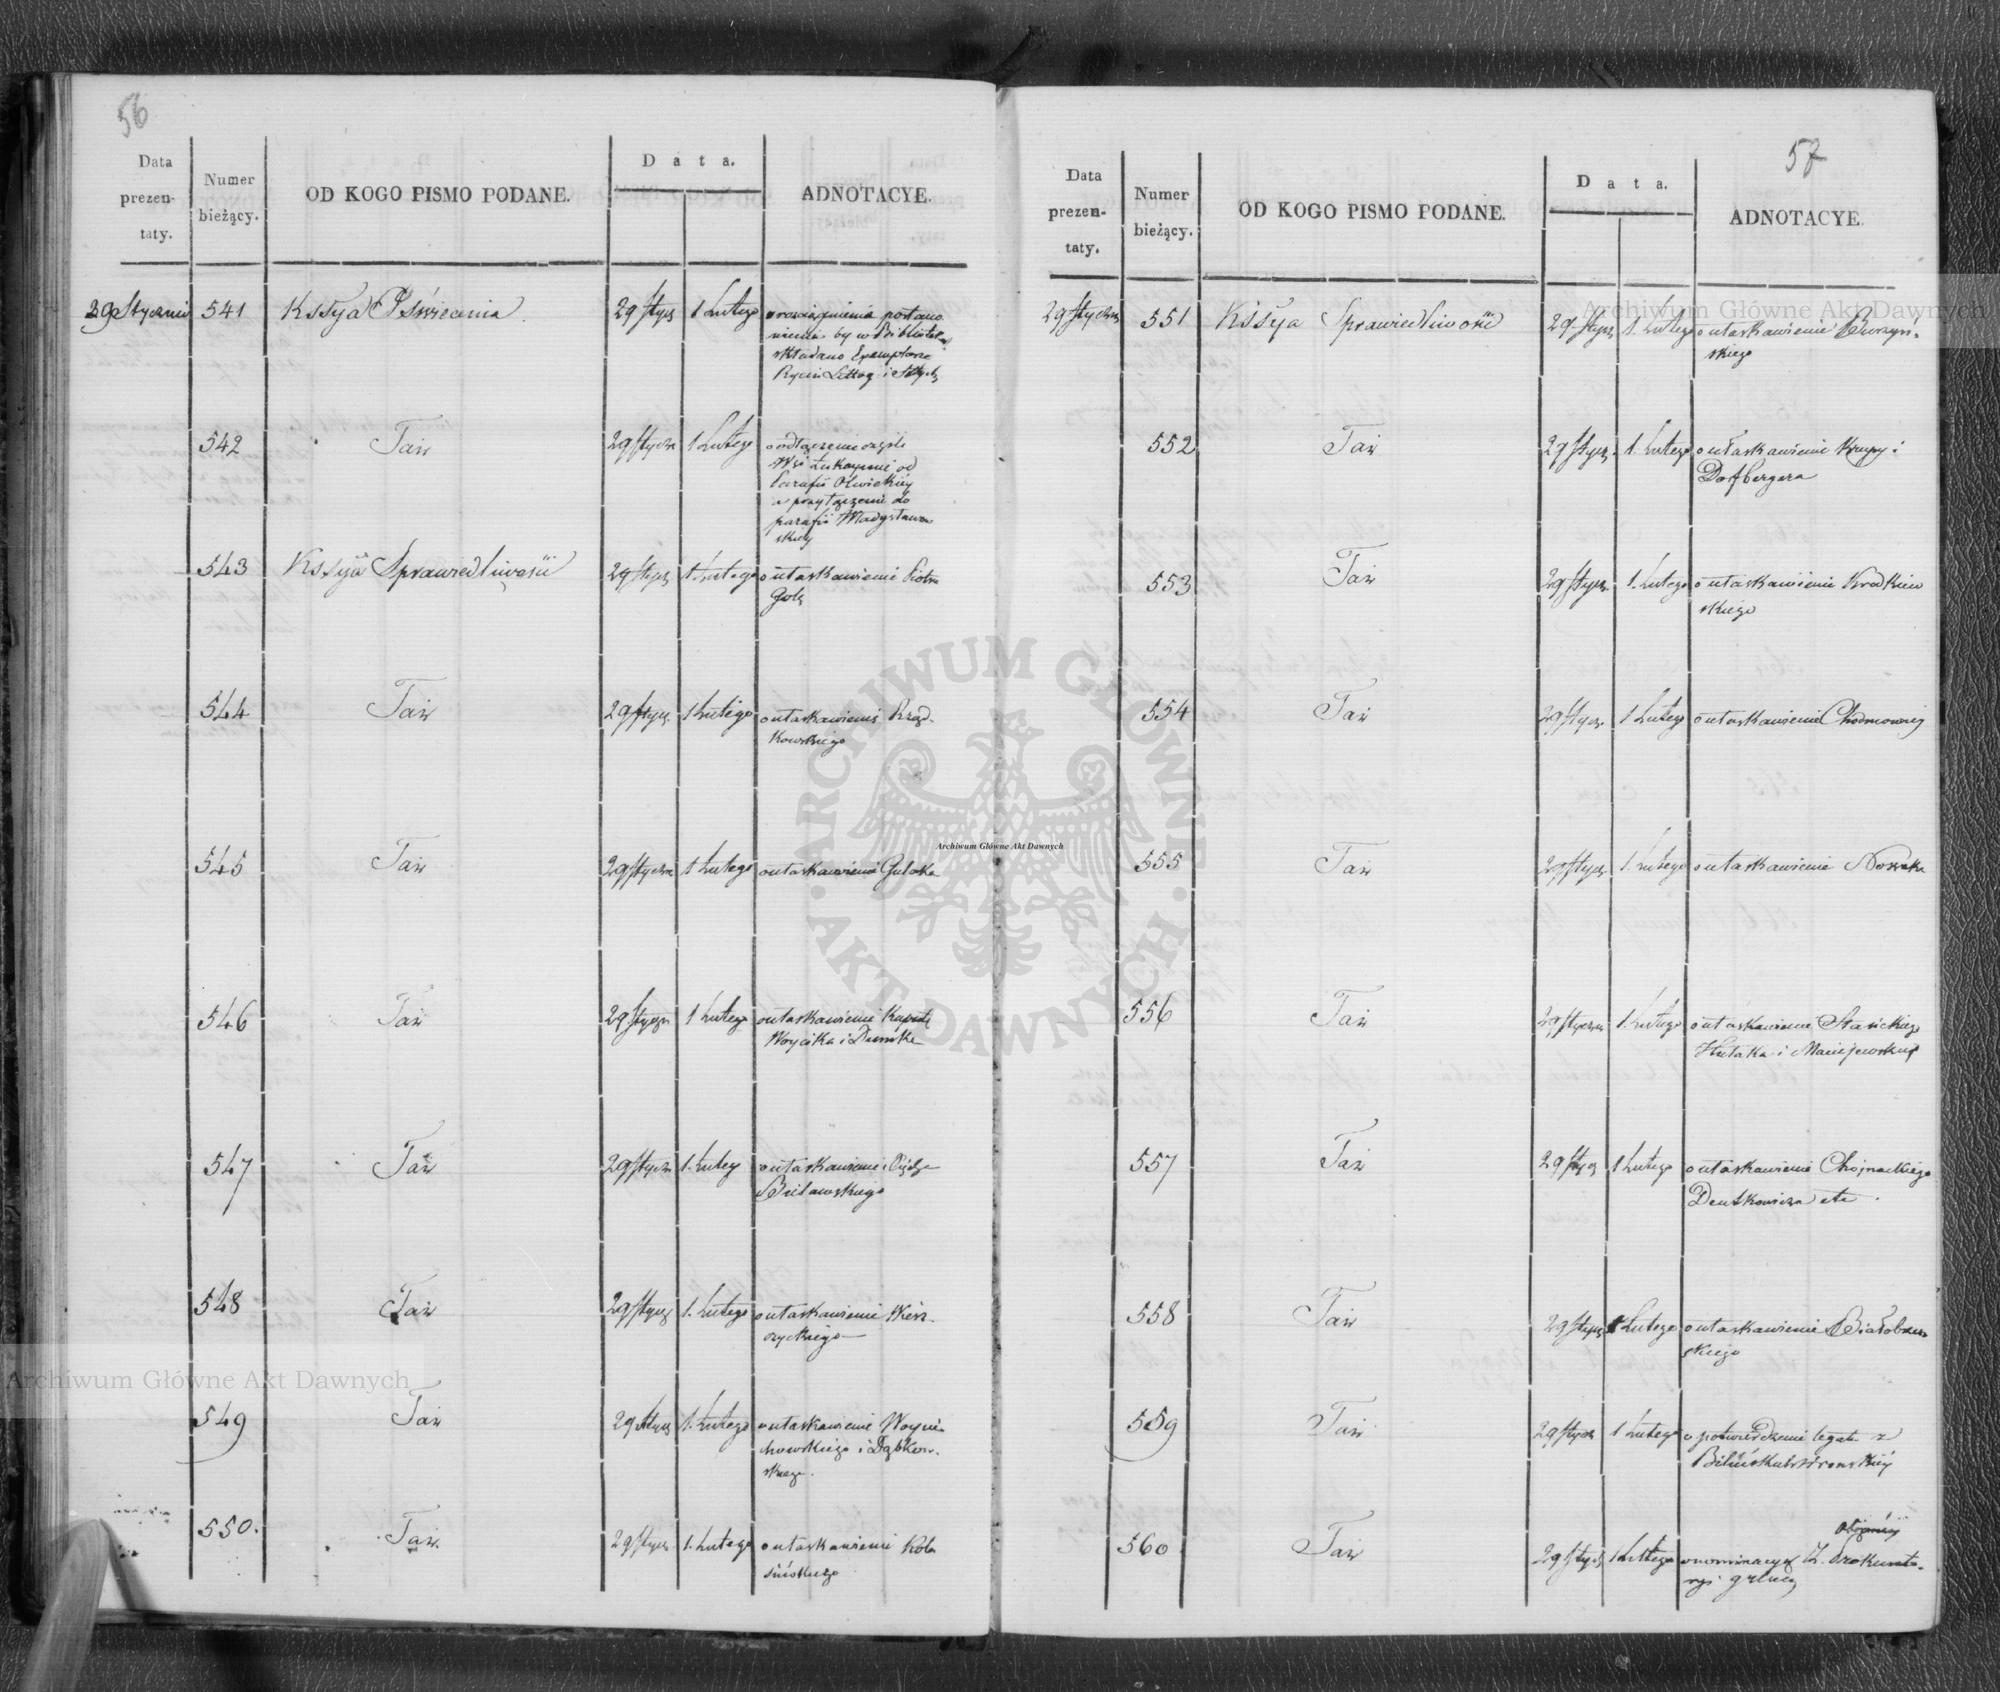 56
Data
prezen-
taty.
Numer
bieżący.
OD KOGO PISMO PODANE.
Data.
ADNOTACYE.
29 Stycznia 541 Kssya Oświecenia 29 Stycz 1 Lutego
by w Bibliotece
składano Exemplarze
Rycin Littog. i
542 Taż 29 Stycz 1 Lutego o odłączenie części
Wsi od
Parafii
a przyłączenie do
parafii Władysławow
skiey
543 Kssya Sprawiedliwości 29 Stycz 1 Lutego o ułaskawienie Piotra
544 Taż 29 Stycz 1 Lutego o ułaskawienie Rząd-
kowskiego
545 Taż 29 Stycz 1 Lutego o ułaskawienie Gulaka
546 Taż 29 Stycz 1 Lutego o ułaskawienie
Woycika i
547 Taż 29 Stycz 1. Lutego o ułaskawienie
Bielawskiego
548 Taż 29 Stycz 1. Lutego o ułaskawienie Wierz-
byckiego
549 Taż 29 Stycz 1. Lutego o ułaskawienie Woycie-
chowskiego i Dąbkow-
skiego.
550. Taż 29 Stycz 1. Lutego o ułaskawienie Kola
sińskiego
57
Data
prezen-
taty.
Numer
bieżący.
OD KOGO PISMO PODANE.
Data.
ADNOTACYE.
29 Stycznia 551 Kssya Sprawiedliwości 29 Stycz 1. Lutego o ułaskawienie Burzyń-
skiego
552 Taż 29 Stycz 1. Lutego o ułaskawienie Krupy i
Dofbergera
553 Taż 29 Stycz. 1. Lutego o ułaskawienie Krodkiew
skiego
554 Taż 29 Stycz. 1 Lutego o ułaskawienie
555 Taż 29 Stycz 1. Lutego o ułaskawienie Nowaka
556 Taż 29 Stycz 1. Lutego o ułaskawienie Stasickiego
Hulaka i Maciejewskiey
557 Taż 29 Stycz 1 Lutego o ułaskawienie Chojnackiego
Deutkowicza etc.
558 Taż 29 Stycz 1 Lutego o ułaskawienie Białobrze
skiego
559 Taż 29 Stycz 1 Lutego o potwierdzenie legatu z
560 Taż 29 Stycz 1 Lutego o nominacyą Z. Prokurato-
Archiwum Główne Akt Dawnych
ARCHIWUM GŁÓWNE AKT DAWNYCH
Archiwum Główne Akt Dawnych
Archiwum Główne Akt Dawnych